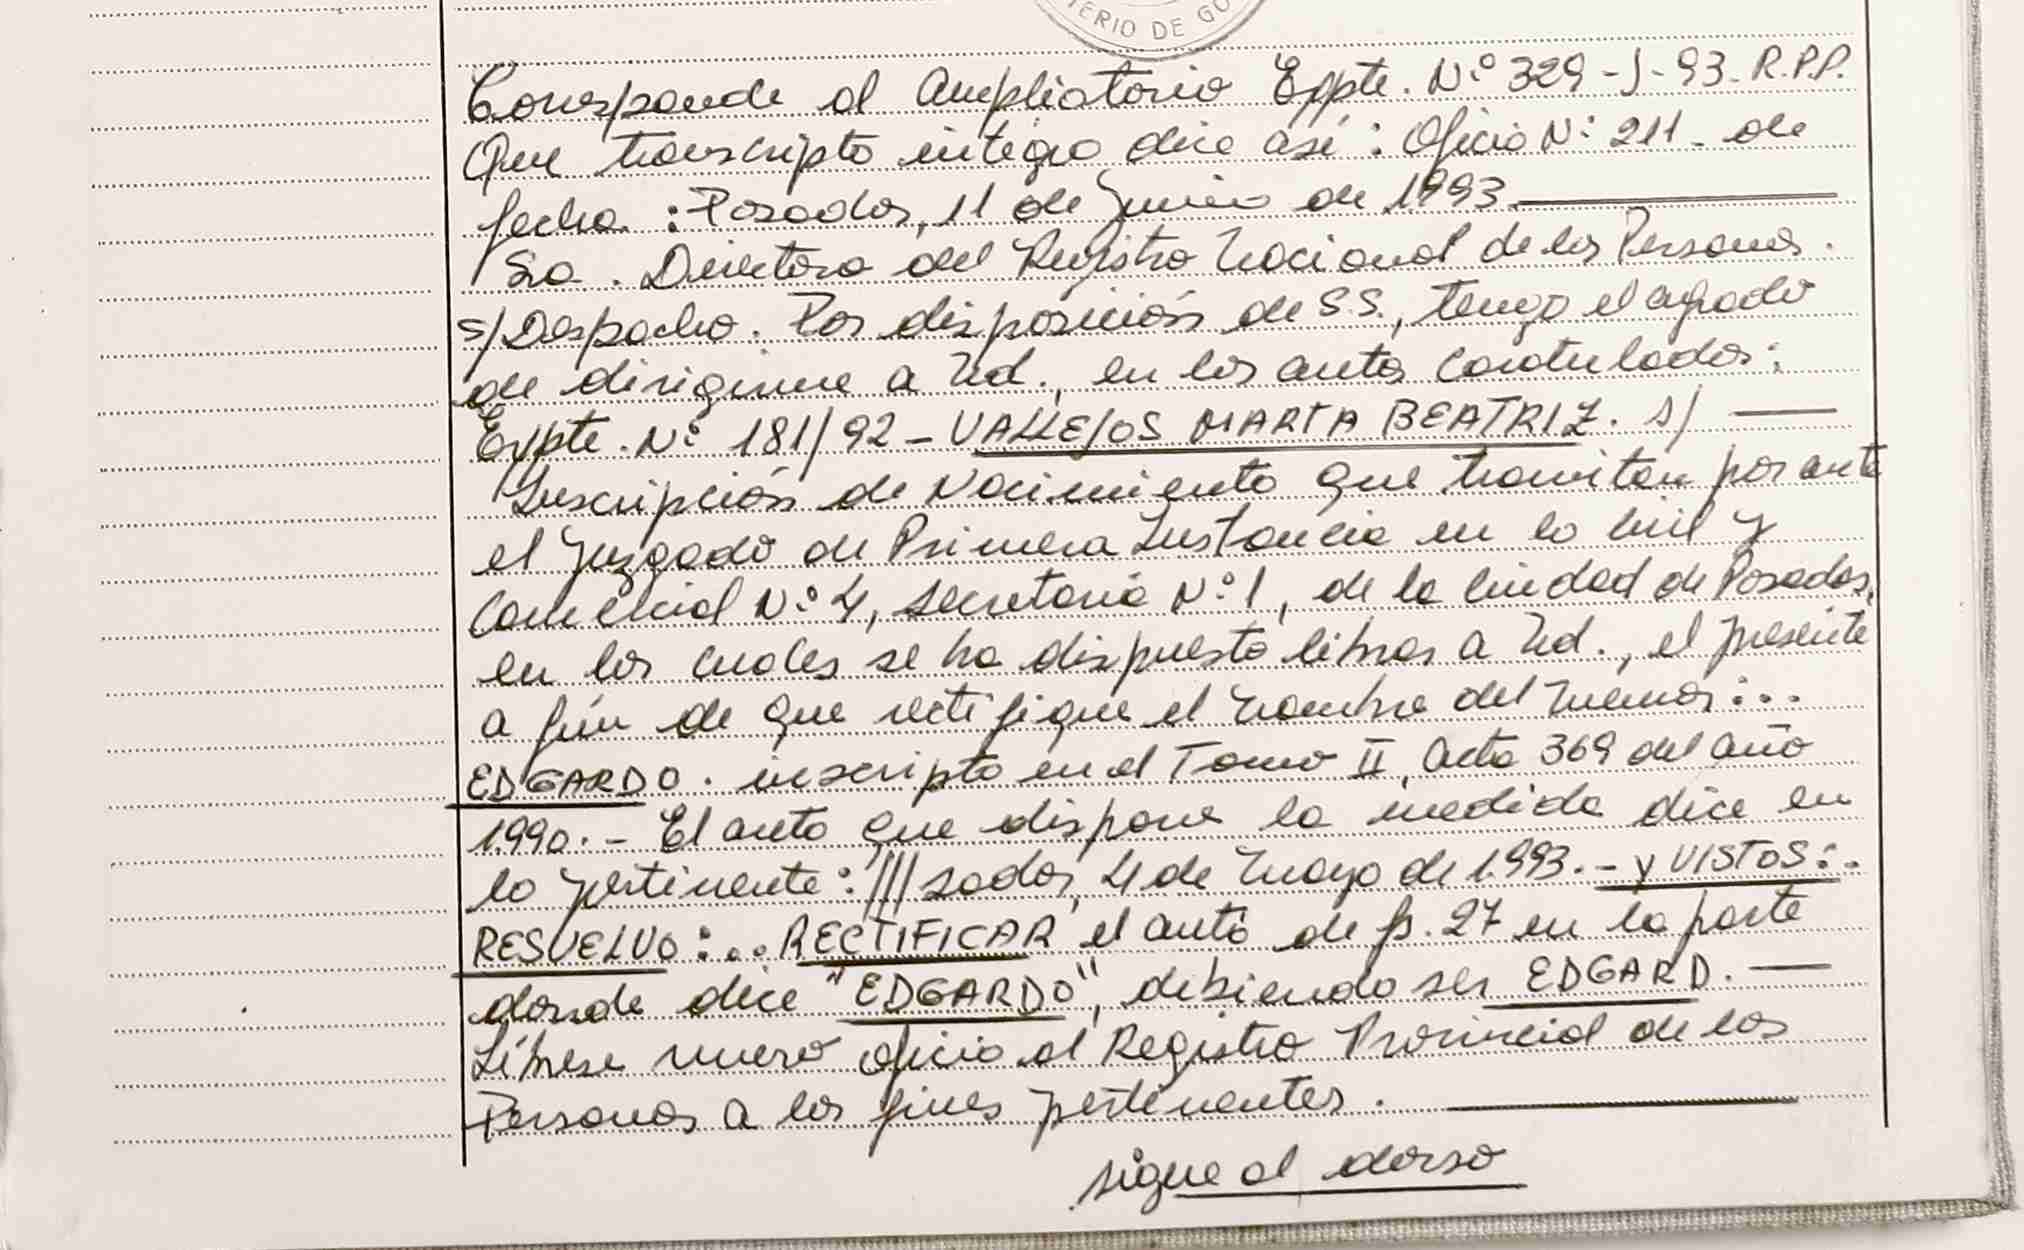 TERIO DE GO
Corresponde al Ampliatorio Expte. Nº 329-J-93-R.P.P.
Que transcripto integro dice así: Oficio Nº 211- de
fecha: Posadas, 11 de Junio de 1.993.
Sra. Directora del Registro Nacional de las Personas.
S/Despacho. Por disposición de S.S., tengo el agrado
de dirigirme a Ud., en los autos caratulados:
Expte. Nº 181/92 - VALLEJOS MARTA BEATRIZ. s/
Inscripción de Nacimiento que tramitan por ante
el Juzgado de Primera Instancia en lo Civil y
Comercial Nº 4, Secretaria Nº 1, de la Ciudad de Posadas,
en los cuales se ha dispuesto librar a Ud., el presente
a fín de que rectifique el nombre del menor:..
EDGARDO. inscripto en el Tomo II, Acta 369 del año
1.990.- El auto que dispone la medida dice en
lo pertinente: ///sadas, 4 de Mayo de 1.993.- Y VISTOS:.
RESUELVO:... RECTIFICAR el auto de fs. 27 en la parte
donde dice "EDGARDO", debiendo ser EDGARD.
Líbrese nuevo oficio al Registro Provincial de las
Personas a los fines pertinentes.
sigue al dorso